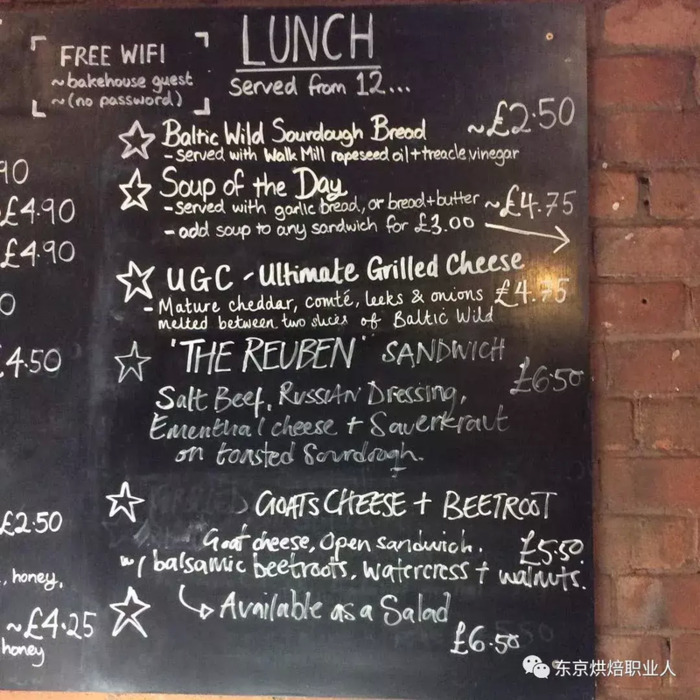 FREE WIFI
~bakehouse guest
~(no password)
LUNCH
Served from 12...
Baltic Wild Sourdough Bread ~£2.50
-served with Walk Mill rapeseed oil+treacle vinegar
Soup of the Day
-served with garlic bread, or bread+butter ~£4.75
-add soup to any sandwich for £3.00
UGC - Ultimate Grilled Cheese
-Mature cheddar, comté, leeks & onions £4.75
melted between two slices of Baltic Wild
'THE REUBEN' SANDWICH £6.50
Salt Beef, Russian Dressing,
Ementhal cheese + Sauerkraut
on toasted Sourdough.
GOATS CHEESE + BEETROOT
Goat cheese, Open sandwich. £5.50
w/ balsamic beetroots, watercress + walnuts.
Available as a Salad
£6.50
90
£4.90
£4.90
0
4.50
£2.50
, honey,
~£4.25
honey
东京烘焙职业人